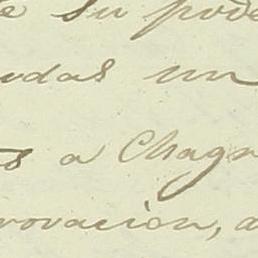 e su pode
udas un
s a Chagr
rovacion, a